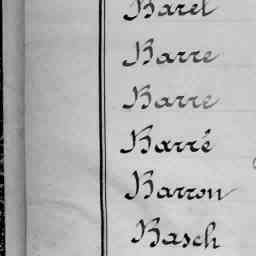 Barel
Barre
Barre
Barré
Barron
Basch